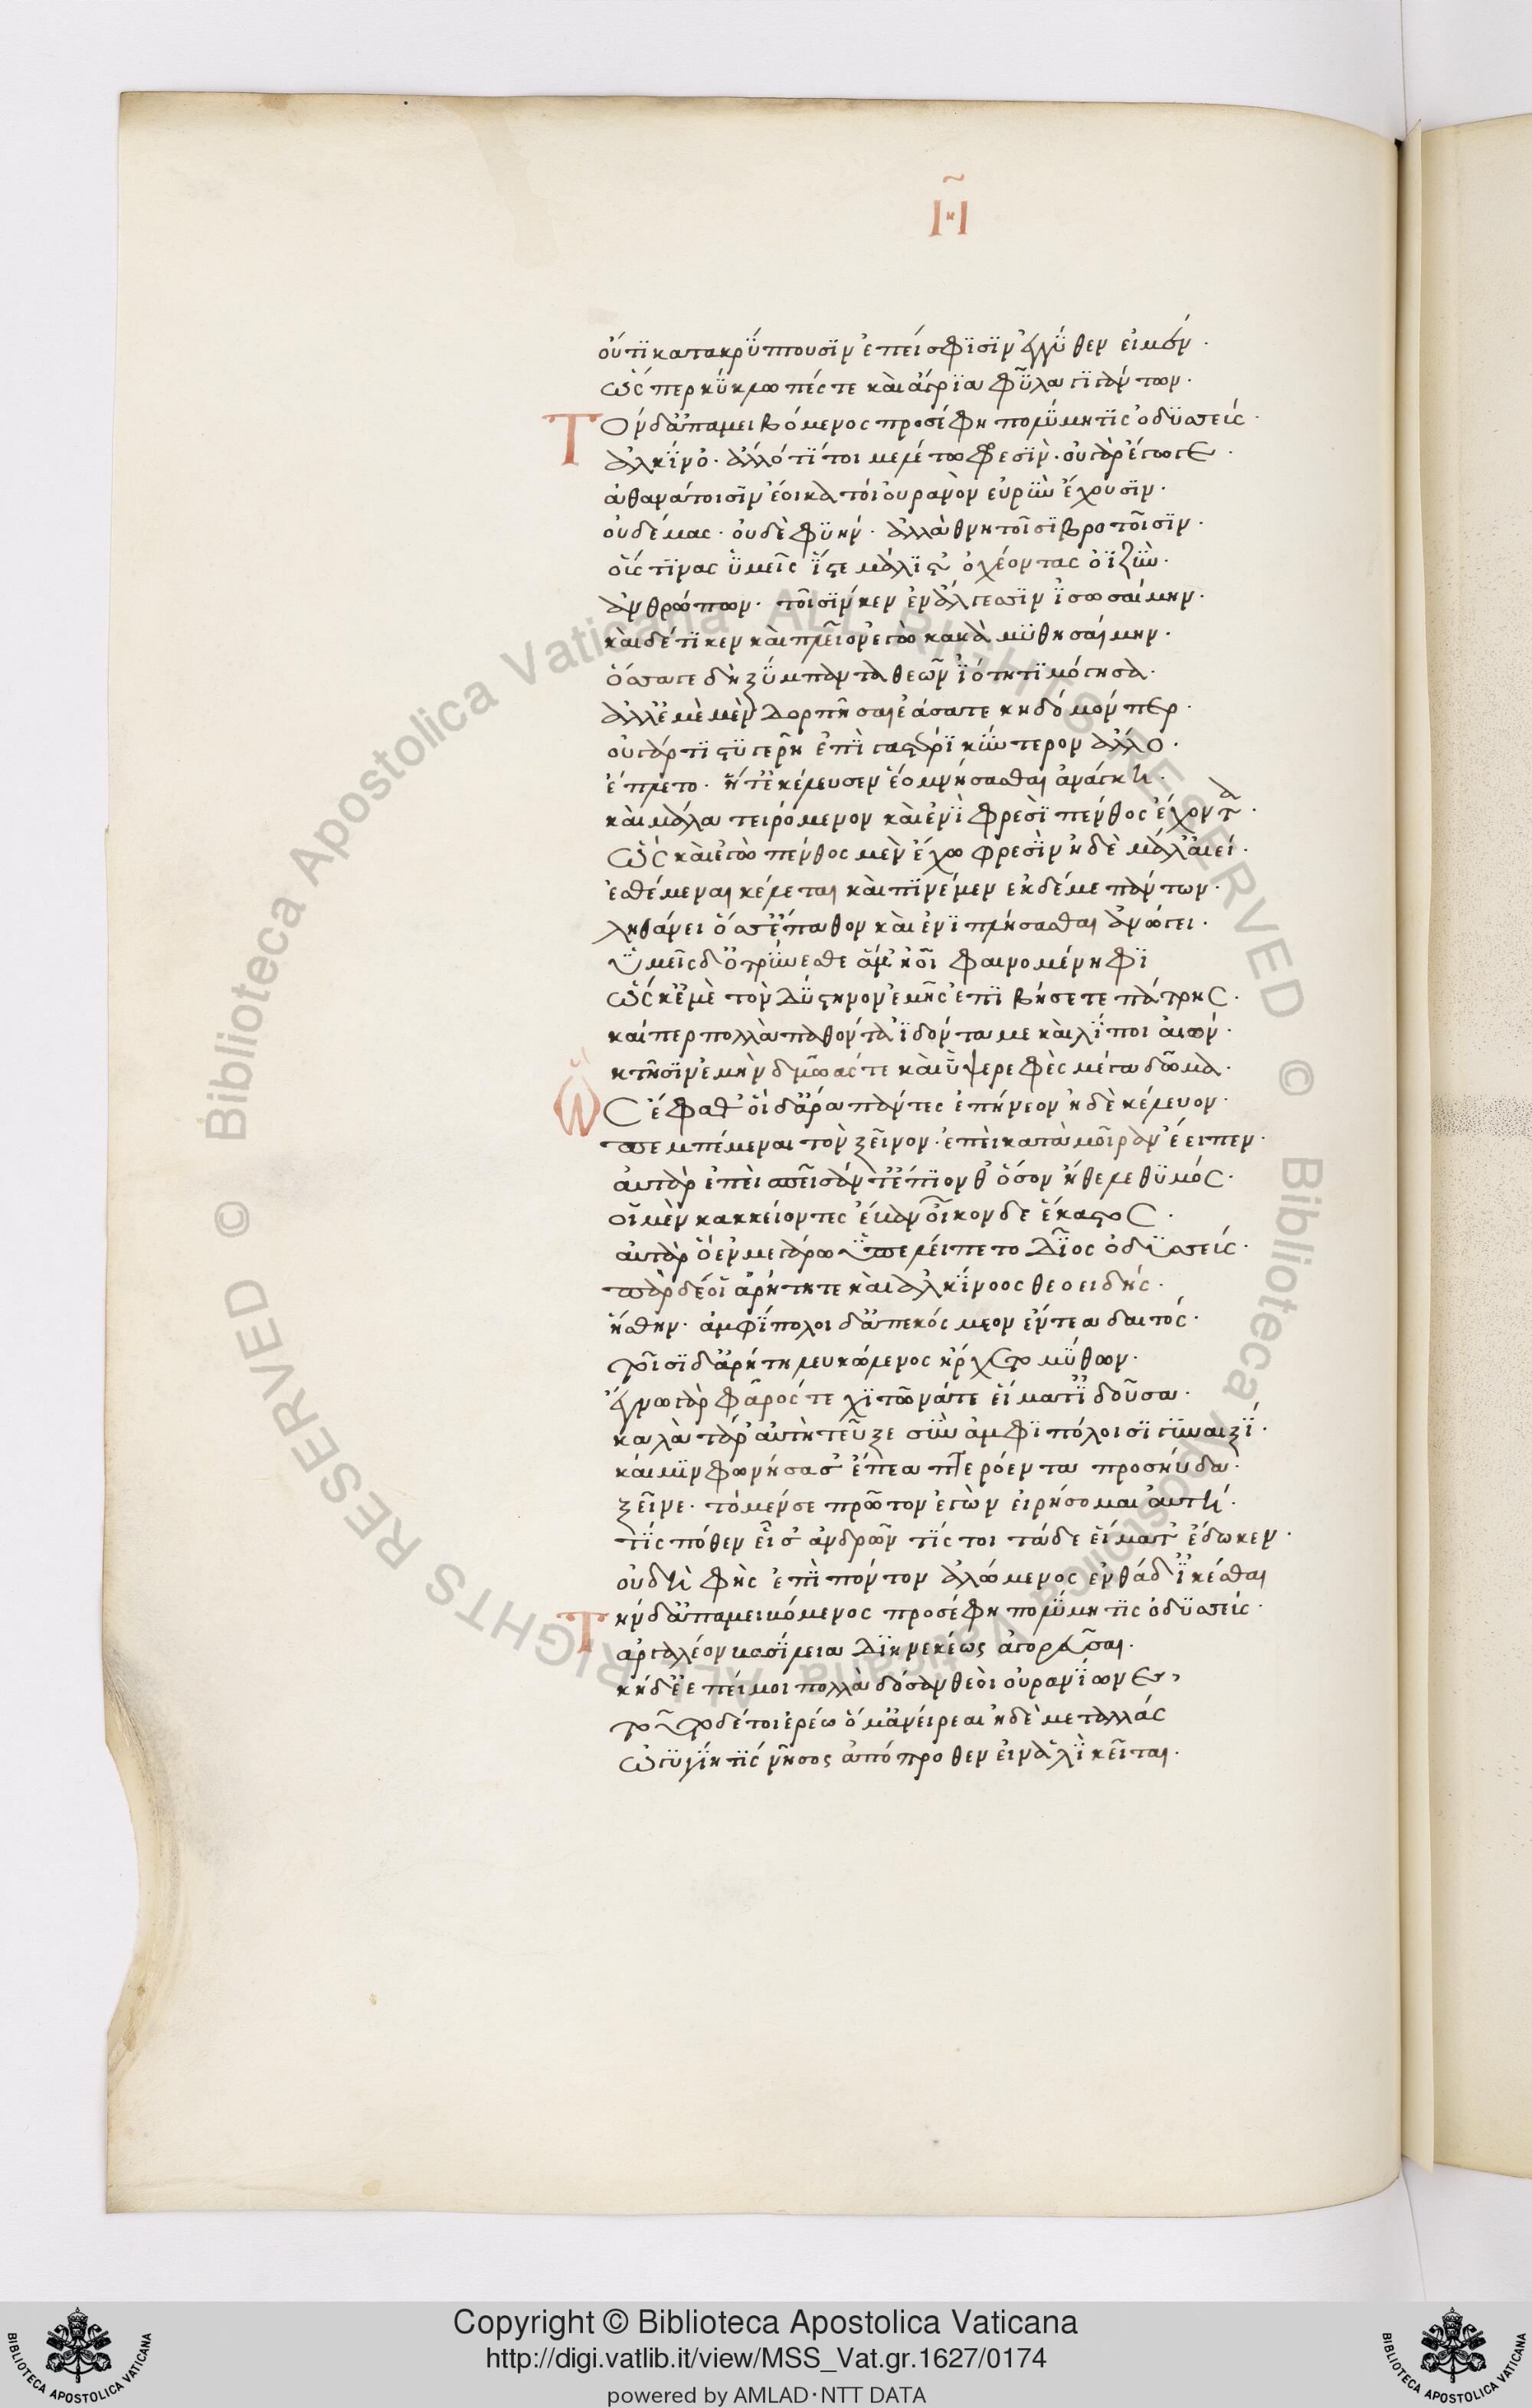 Η
οὔτι κατακρύπτουσιν ἐπεί σφισιν ἐγγύθεν εἰμέν·
ὥς περ κύκλωπές τε καὶ ἄγρια φῦλα γιγάντων·
Τὸν δ' ἀπαμειβόμενος προσέφη πολύμητις ὀδυσσεύς·
ἀλκίνο'· ἄλλό τί τοι μελέτω φρεσίν· οὐ γὰρ ἔγωγε·
ἀθανάτοισιν ἔοικα τοὶ οὐρανὸν εὐρὺν ἔχουσιν·
οὐ δέμας· οὐδὲ φυήν· ἀλλὰ θνητοῖσι βροτοῖσιν·
οὕς τινας ὑμεῖς ἴστε μάλιστ' ὀχέοντας ὀϊζὺν·
ἀνθρώπων· τοῖσίν κεν ἐν ἄλγεσιν ἰσωσαίμην·
καὶ δ' ἔτι κεν καὶ πλεῖον' ἐγὼ κακὰ μυθησαίμην·
ὅσσα γε δὴ ξύμπαντα θεῶν ἰότητι μόγησα·
ἀλλ' ἐμὲ μὲν δορπῆσαι ἐάσατε κηδόμενόν περ·
οὐ γάρ τι στυγερῇ ἐπὶ γαστέρι κύντερον ἄλλο·
ἔπλετο· ἥ τ' ἐκέλευσεν ἕο μνήσασθαι ἀνάγκῃ·
καὶ μάλα τειρόμενον καὶ ἐνὶ φρεσὶ πένθος ἔχοντα·
ὣς καὶ ἐγὼ πένθος μὲν ἔχω φρεσὶν ἡ δὲ μάλ' αἰεί·
ἐσθέμεναι κέλεται καὶ πινέμεν ἐκ δέ με πάντων·
ληθάνει ὅσσ' ἔπαθον καὶ ἐνιπλήσασθαι ἀνώγει·
ὑμεῖς δ' ὀτρύνεσθε ἅμ' ἠοῖ φαινομένηφι
ὥς κ' ἐμὲ τὸν δύστηνον ἐμῆς ἐπιβήσετε πάτρης·
καί περ πολλὰ παθόντα ἰδόντα με καὶ λίποι αἰών·
κτῆσιν ἐμὴν δμῶάς τε καὶ ὑψερεφὲς μέγα δῶμα·
Ὣς ἔφαθ' οἱ δ' ἄρα πάντες ἐπῄνεον ἠδὲ κέλευον·
πεμπέμεναι τὸν ξεῖνον· ἐπεὶ κατὰ μοῖραν ἔειπεν·
αὐτὰρ ἐπεὶ σπεῖσάν τ' ἔπιον θ' ὅσον ἤθελε θυμός·
οἱ μὲν κακκείοντες ἔβαν οἶκον δε ἕκαστος·
αὐτὰρ ὁ ἐν μεγάρω ὑπελείπετο δῖος ὀδυσσεύς·
πὰρ δέ οἱ ἀρήτη τε καὶ ἀλκίνοος θεοειδής·
ἥσθην· ἀμφίπολοι δ' ἀπεκόσμεον ἔντεα δαιτός·
τοῖσι δ' ἀρήτη λευκώλενος ἤρχετο μύθων·
ἔγνω γὰρ φᾶρός τε χιτῶνά τε εἵματ' ἰδοῦσα·
καλὰ τά ῥ' αὐτὴ τεῦξε σὺν ἀμφιπόλοισι γυναιξί·
καί μιν φωνήσασ' ἔπεα πτερόεντα προσηύδα·
ξεῖνε· τὸ μέν σε πρῶτον ἐγὼν εἰρήσομαι αὐτή·
τίς πόθεν εἶς ἀνδρῶν τίς τοι τάδε εἵματ' ἔδωκεν·
οὐ δὴ φὴς ἐπὶ πόντον ἀλώμενος ἐνθάδ' ἱκέσθαι
Τὴν δ' ἀπαμειβόμενος προσέφη πολύμητις ὀδυσσεύς·
ἀργαλέον βασίλεια διηνεκέως ἀγορεῦσαι·
κήδε' ἐπεί μοι πολλὰ δόσαν θεοὶ οὐρανίωνες
τοῦτο δέ τοι ἐρέω ὅ μ' ἀνείρεαι ἠδὲ μεταλλᾷς
ὠγυγίη τίς νῆσος ἀπόπροθεν εἰν ἁλὶ κεῖται·
Copyright © Biblioteca Apostolica Vaticana
http://digi.vatlib.it/view/MSS_Vat.gr.1627/0174
powered by AMLAD·NTT DATA